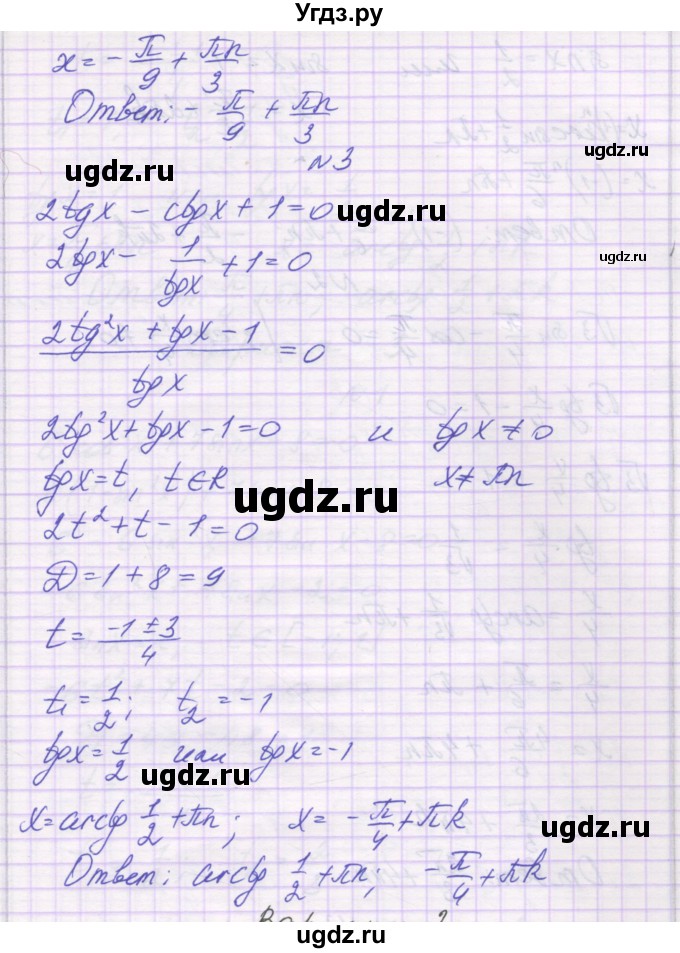 Угдз.ру
x = -π/9 + πn/3
Ответ: -π/9 + πn/3
ugdz.ru
ugdz.ru
N3
2tgx - ctgx + 1 = 0
ugdz.ru
2tgx - 1/tgx + 1 = 0
ugdz.ru
(2tg²x + tgx - 1)/tgx = 0
2tg²x + tgx - 1 = 0 и tgx ≠ 0
tgx = t, t ∈ R x ≠ πn
ugdz.ru
2t² + t - 1 = 0
D = 1 + 8 = 9
ugdz.ru
t = (-1 ± 3)/4
t₁ = 1/2; t₂ = -1
tgx = 1/2 или tgx = -1
ugdz.ru
x = arctg 1/2 + πn; x = -π/4 + πk
ugdz.ru
Ответ: arctg 1/2 + πn; -π/4 + πk
ugdz.ru